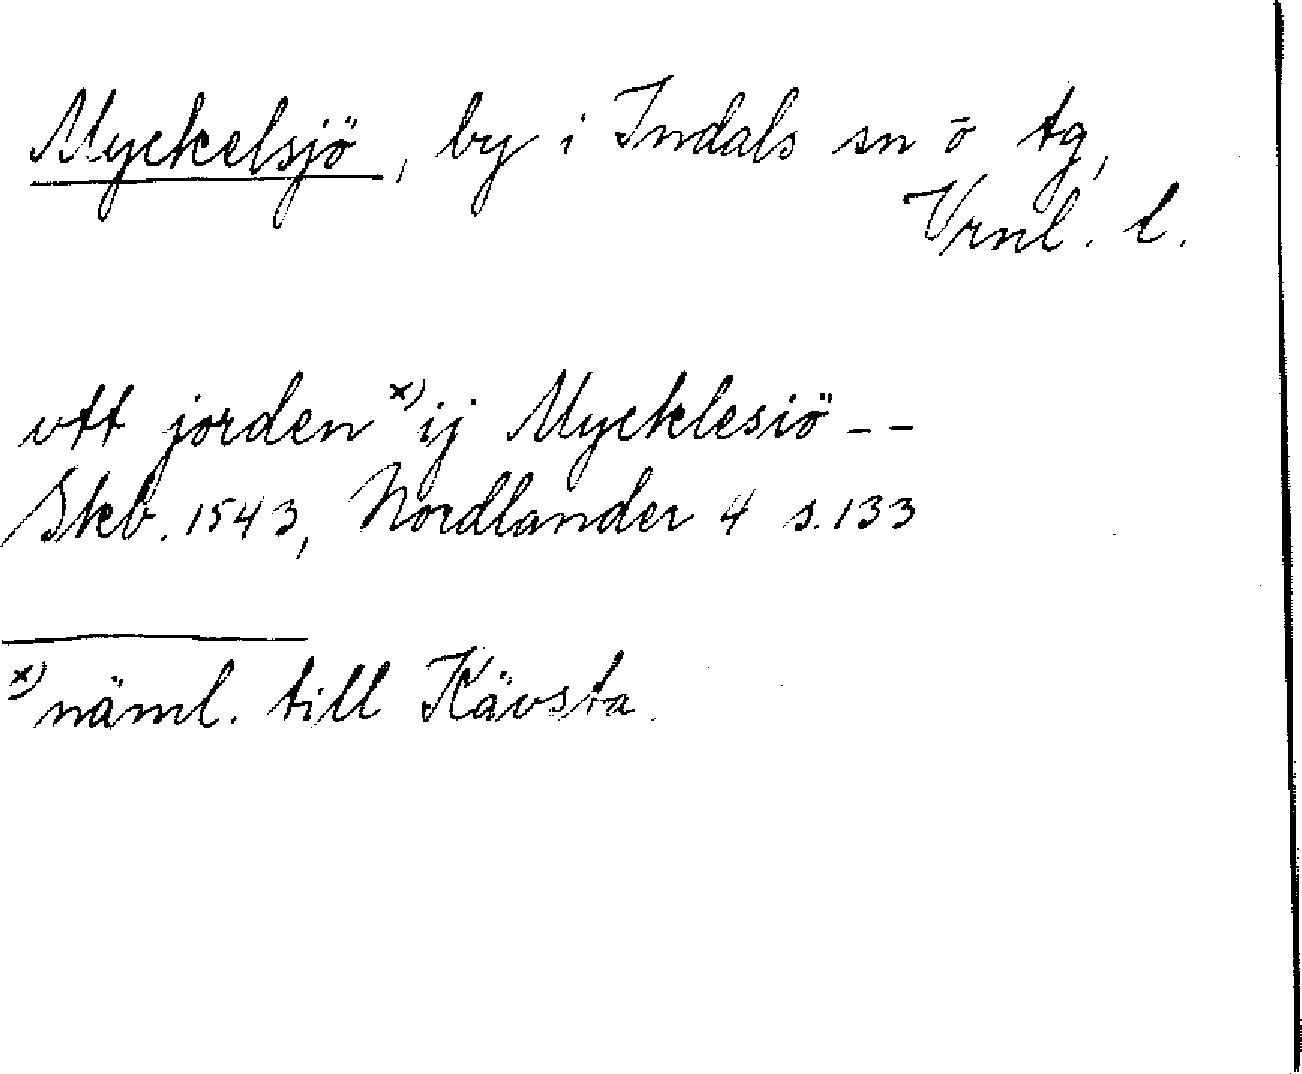 Myckelsjö, by i Indals sn o tg,
Vrnl. l.
vtt jorden x) ij Mycklesiö --
Skb. 1543, Nordlander 4 s. 133
x) näml. till Kävsta.